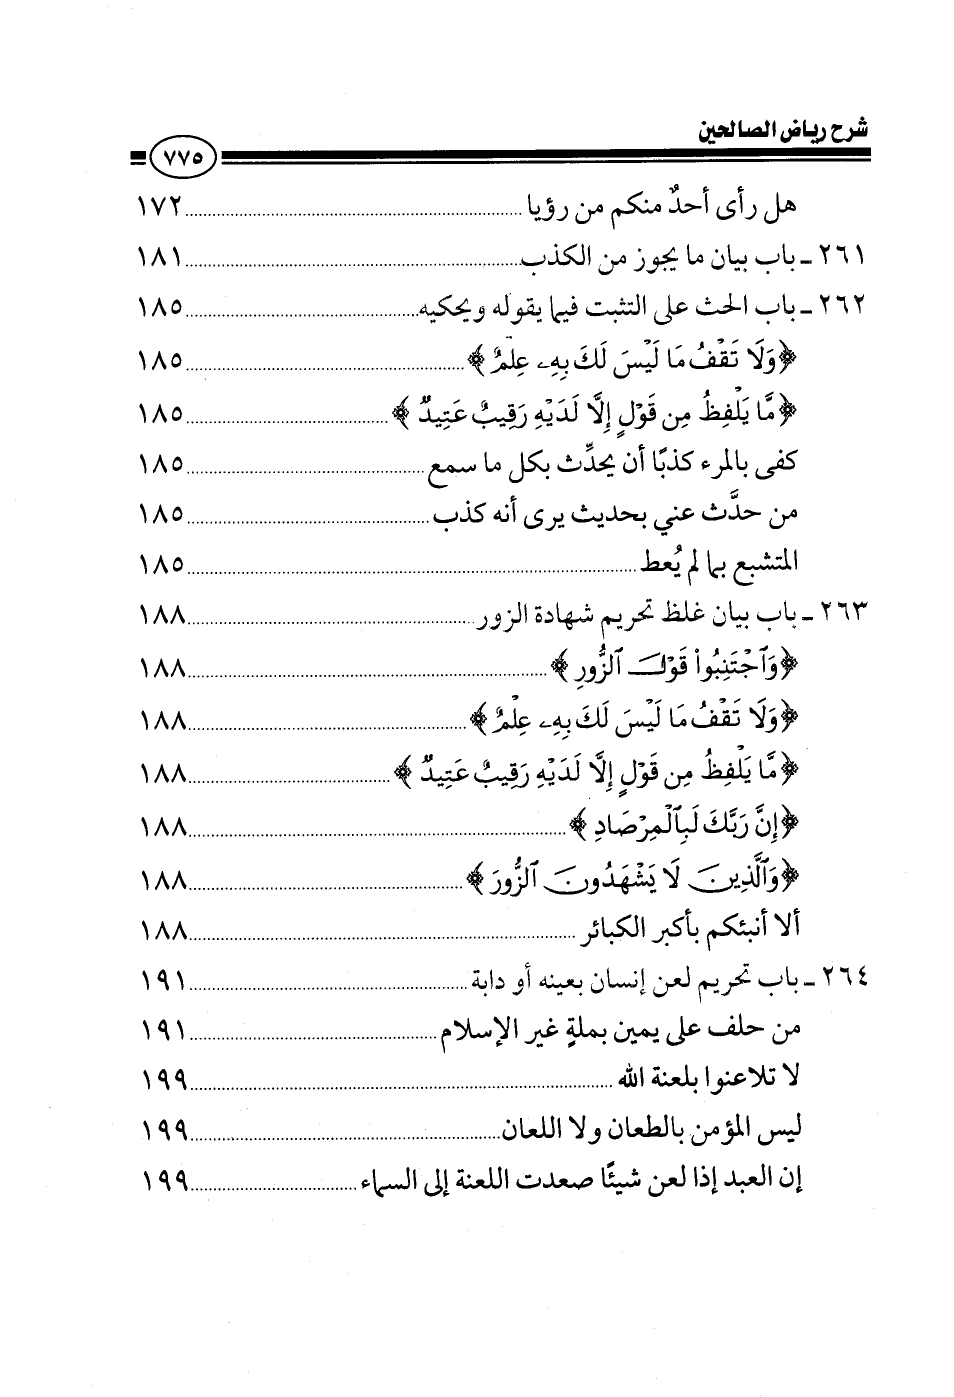 شرح رياض الصالحين
٧٧٥
هل رأى أحدٌ منكم من رؤيا ........ ١٧٢
٢٦١ ـ باب بيان ما يجوز من الكذب ........ ١٨١
٢٦٢ ـ باب الحث على التثبت فيما يقوله ويحكيه ........ ١٨٥
﴿وَلَا تَقْفُ مَا لَيْسَ لَكَ بِهِۦ عِلْمٌ﴾ ........ ١٨٥
﴿مَّا يَلْفِظُ مِن قَوْلٍ إِلَّا لَدَيْهِ رَقِيبٌ عَتِيدٌ﴾ ........ ١٨٥
كفى بالمرء كذبًا أن يحدِّث بكل ما سمع ........ ١٨٥
من حدَّث عني بحديث يرى أنه كذب ........ ١٨٥
المتشبع بما لم يُعط ........ ١٨٥
٢٦٣ ـ باب بيان غلظ تحريم شهادة الزور ........ ١٨٨
﴿وَٱجْتَنِبُوا۟ قَوْلَ ٱلزُّورِ﴾ ........ ١٨٨
﴿وَلَا تَقْفُ مَا لَيْسَ لَكَ بِهِۦ عِلْمٌ﴾ ........ ١٨٨
﴿مَّا يَلْفِظُ مِن قَوْلٍ إِلَّا لَدَيْهِ رَقِيبٌ عَتِيدٌ﴾ ........ ١٨٨
﴿إِنَّ رَبَّكَ لَبِٱلْمِرْصَادِ﴾ ........ ١٨٨
﴿وَٱلَّذِينَ لَا يَشْهَدُونَ ٱلزُّورَ﴾ ........ ١٨٨
ألا أنبئكم بأكبر الكبائر ........ ١٨٨
٢٦٤ ـ باب تحريم لعن إنسان بعينه أو دابة ........ ١٩١
من حلف على يمين بملةٍ غير الإسلام ........ ١٩١
لا تلاعنوا بلعنة الله ........ ١٩٩
ليس المؤمن بالطعان ولا اللعان ........ ١٩٩
إن العبد إذا لعن شيئًا صعدت اللعنة إلى السماء ........ ١٩٩